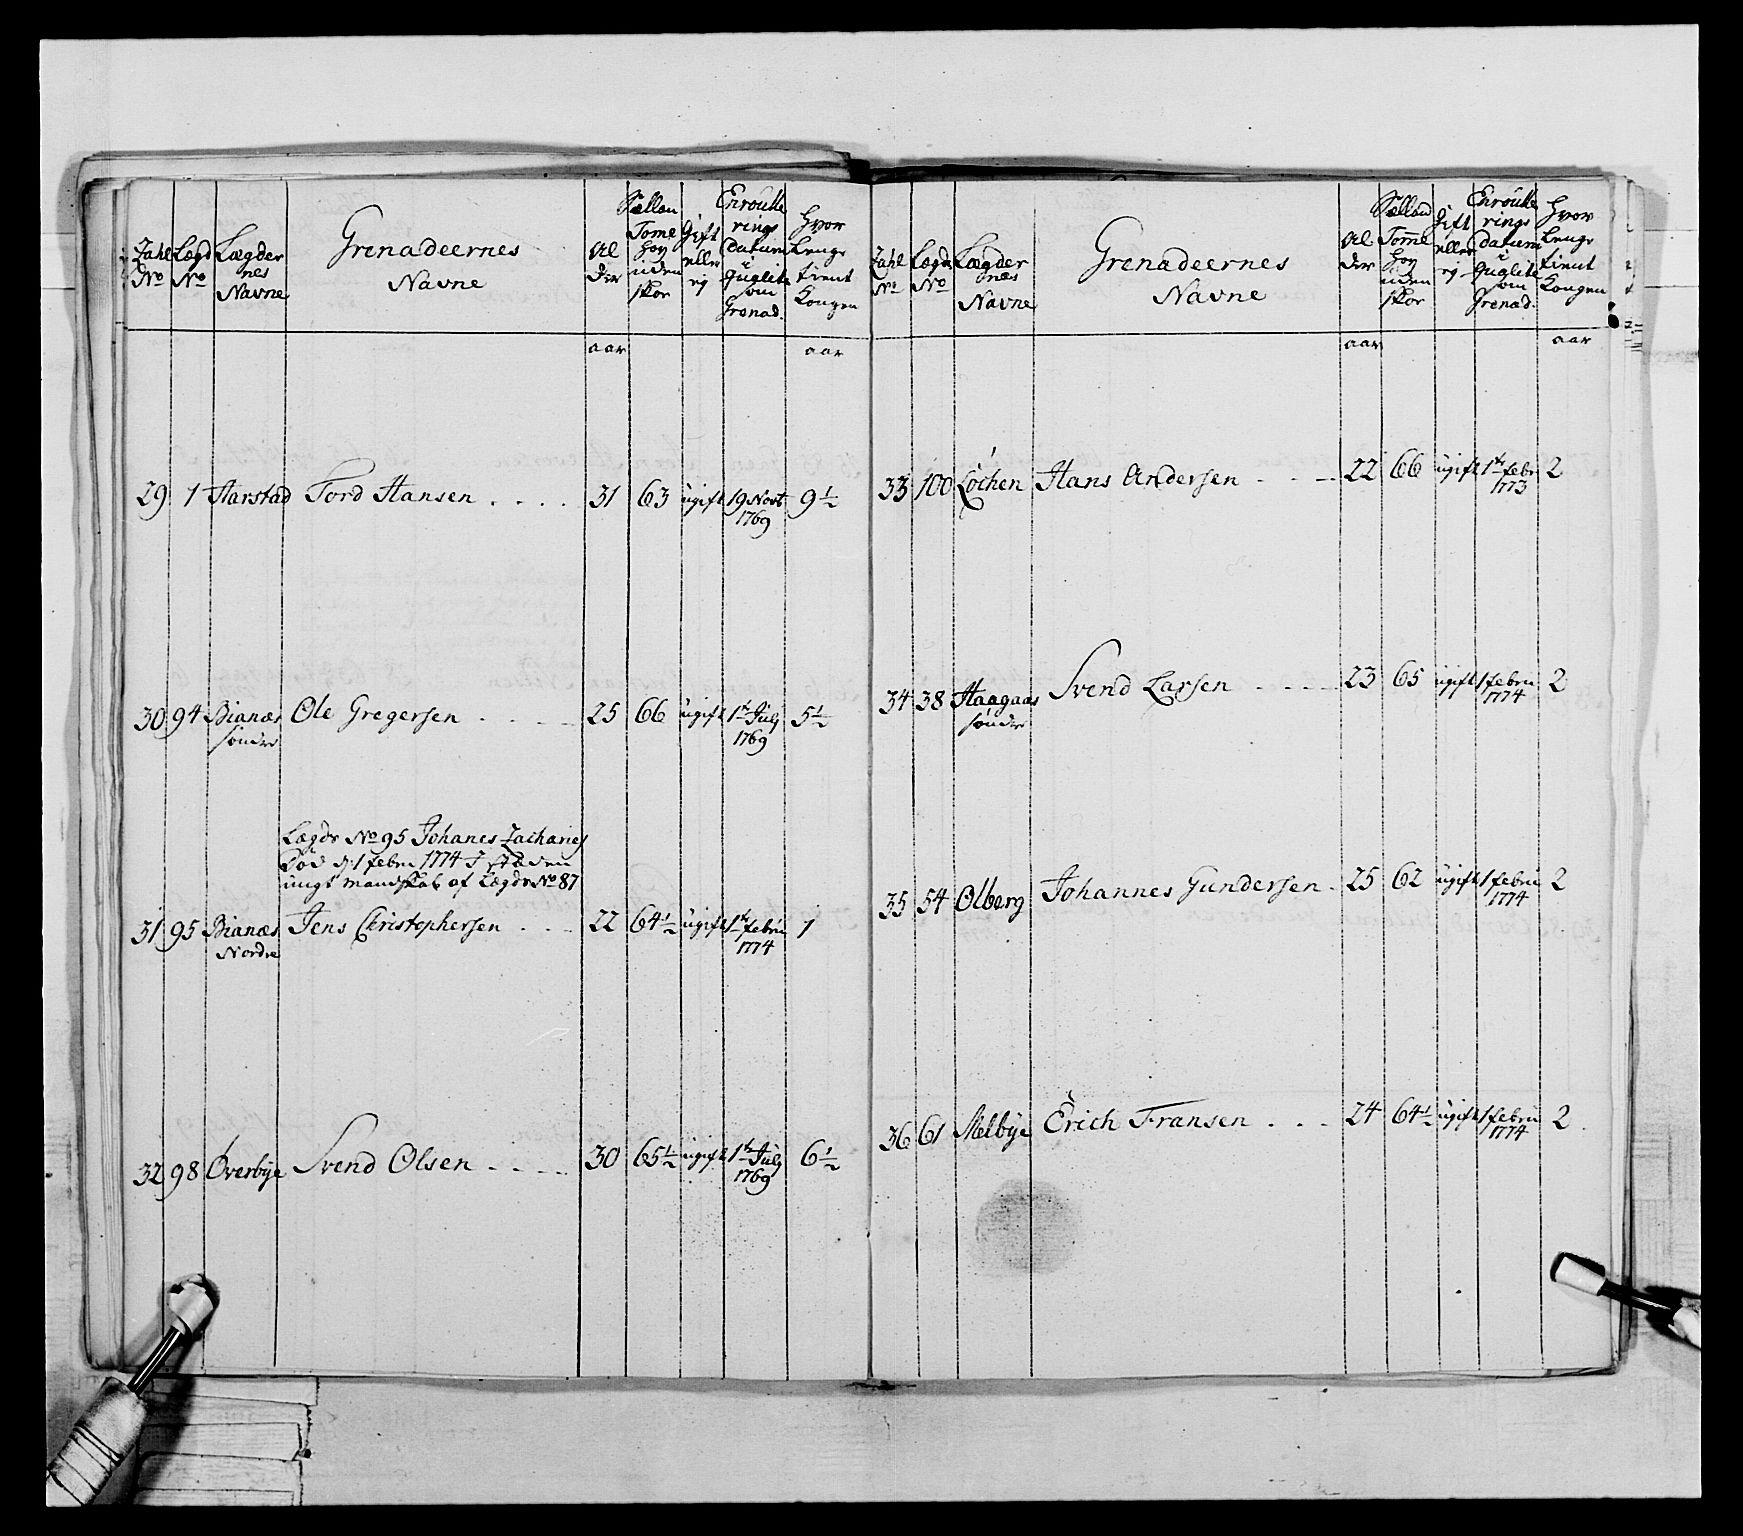 Zahl No
Lægd No
Lægder nes Navne
Grenadeernes Navne
Al der
Sællan Tome høy uden skor
Gift eller ej
Enroulle rings datum i Guglite som Grenad.
Hvor Lenge tient Kongen
aar aar
29 1 Harstad Tord Hansen . . . . 31 63 ugift 19 Novb 1769 9½
30 94 Bianæs Ole Gregersen . . . . 25 66 ugift 1t July 1769 5½
søndre
Lægds No 95 Johanes Zacharies
Død d: 1 febru 1774 I steden
ungt mandskab af Lægds No 87
31 95 Bianæs Jens Christophersen . . . 22 64½ ugift 1t febru 1774 1
Nordre
32 98 Overbye Svend Olsen . . . . 30 65½ ugift 1t July 1769 6½
Zahl No
Lægds No
Lægder nes Navne
Grenadeernes Navne
Al der
Sælland Tome høy uden skor
Gift eller ej
Enroulle rings datum i Guglite som Grenad.
Hvor Lenge tient Kongen
aar aar
33 100 Løchen Hans Andersen . . . 22 66 ugift 1t febr 1773 2
34 38 Haagaas Svend Larsen . . . . 23 65 ugift 1 febru 1774 2
søndre
35 54 Olberg Johannes Gundersen . 25 62 ugift 1 febru 1774 2
36 61 Melbye Erich Fransen . . . 24 64½ ugift 1 febru 1774 2